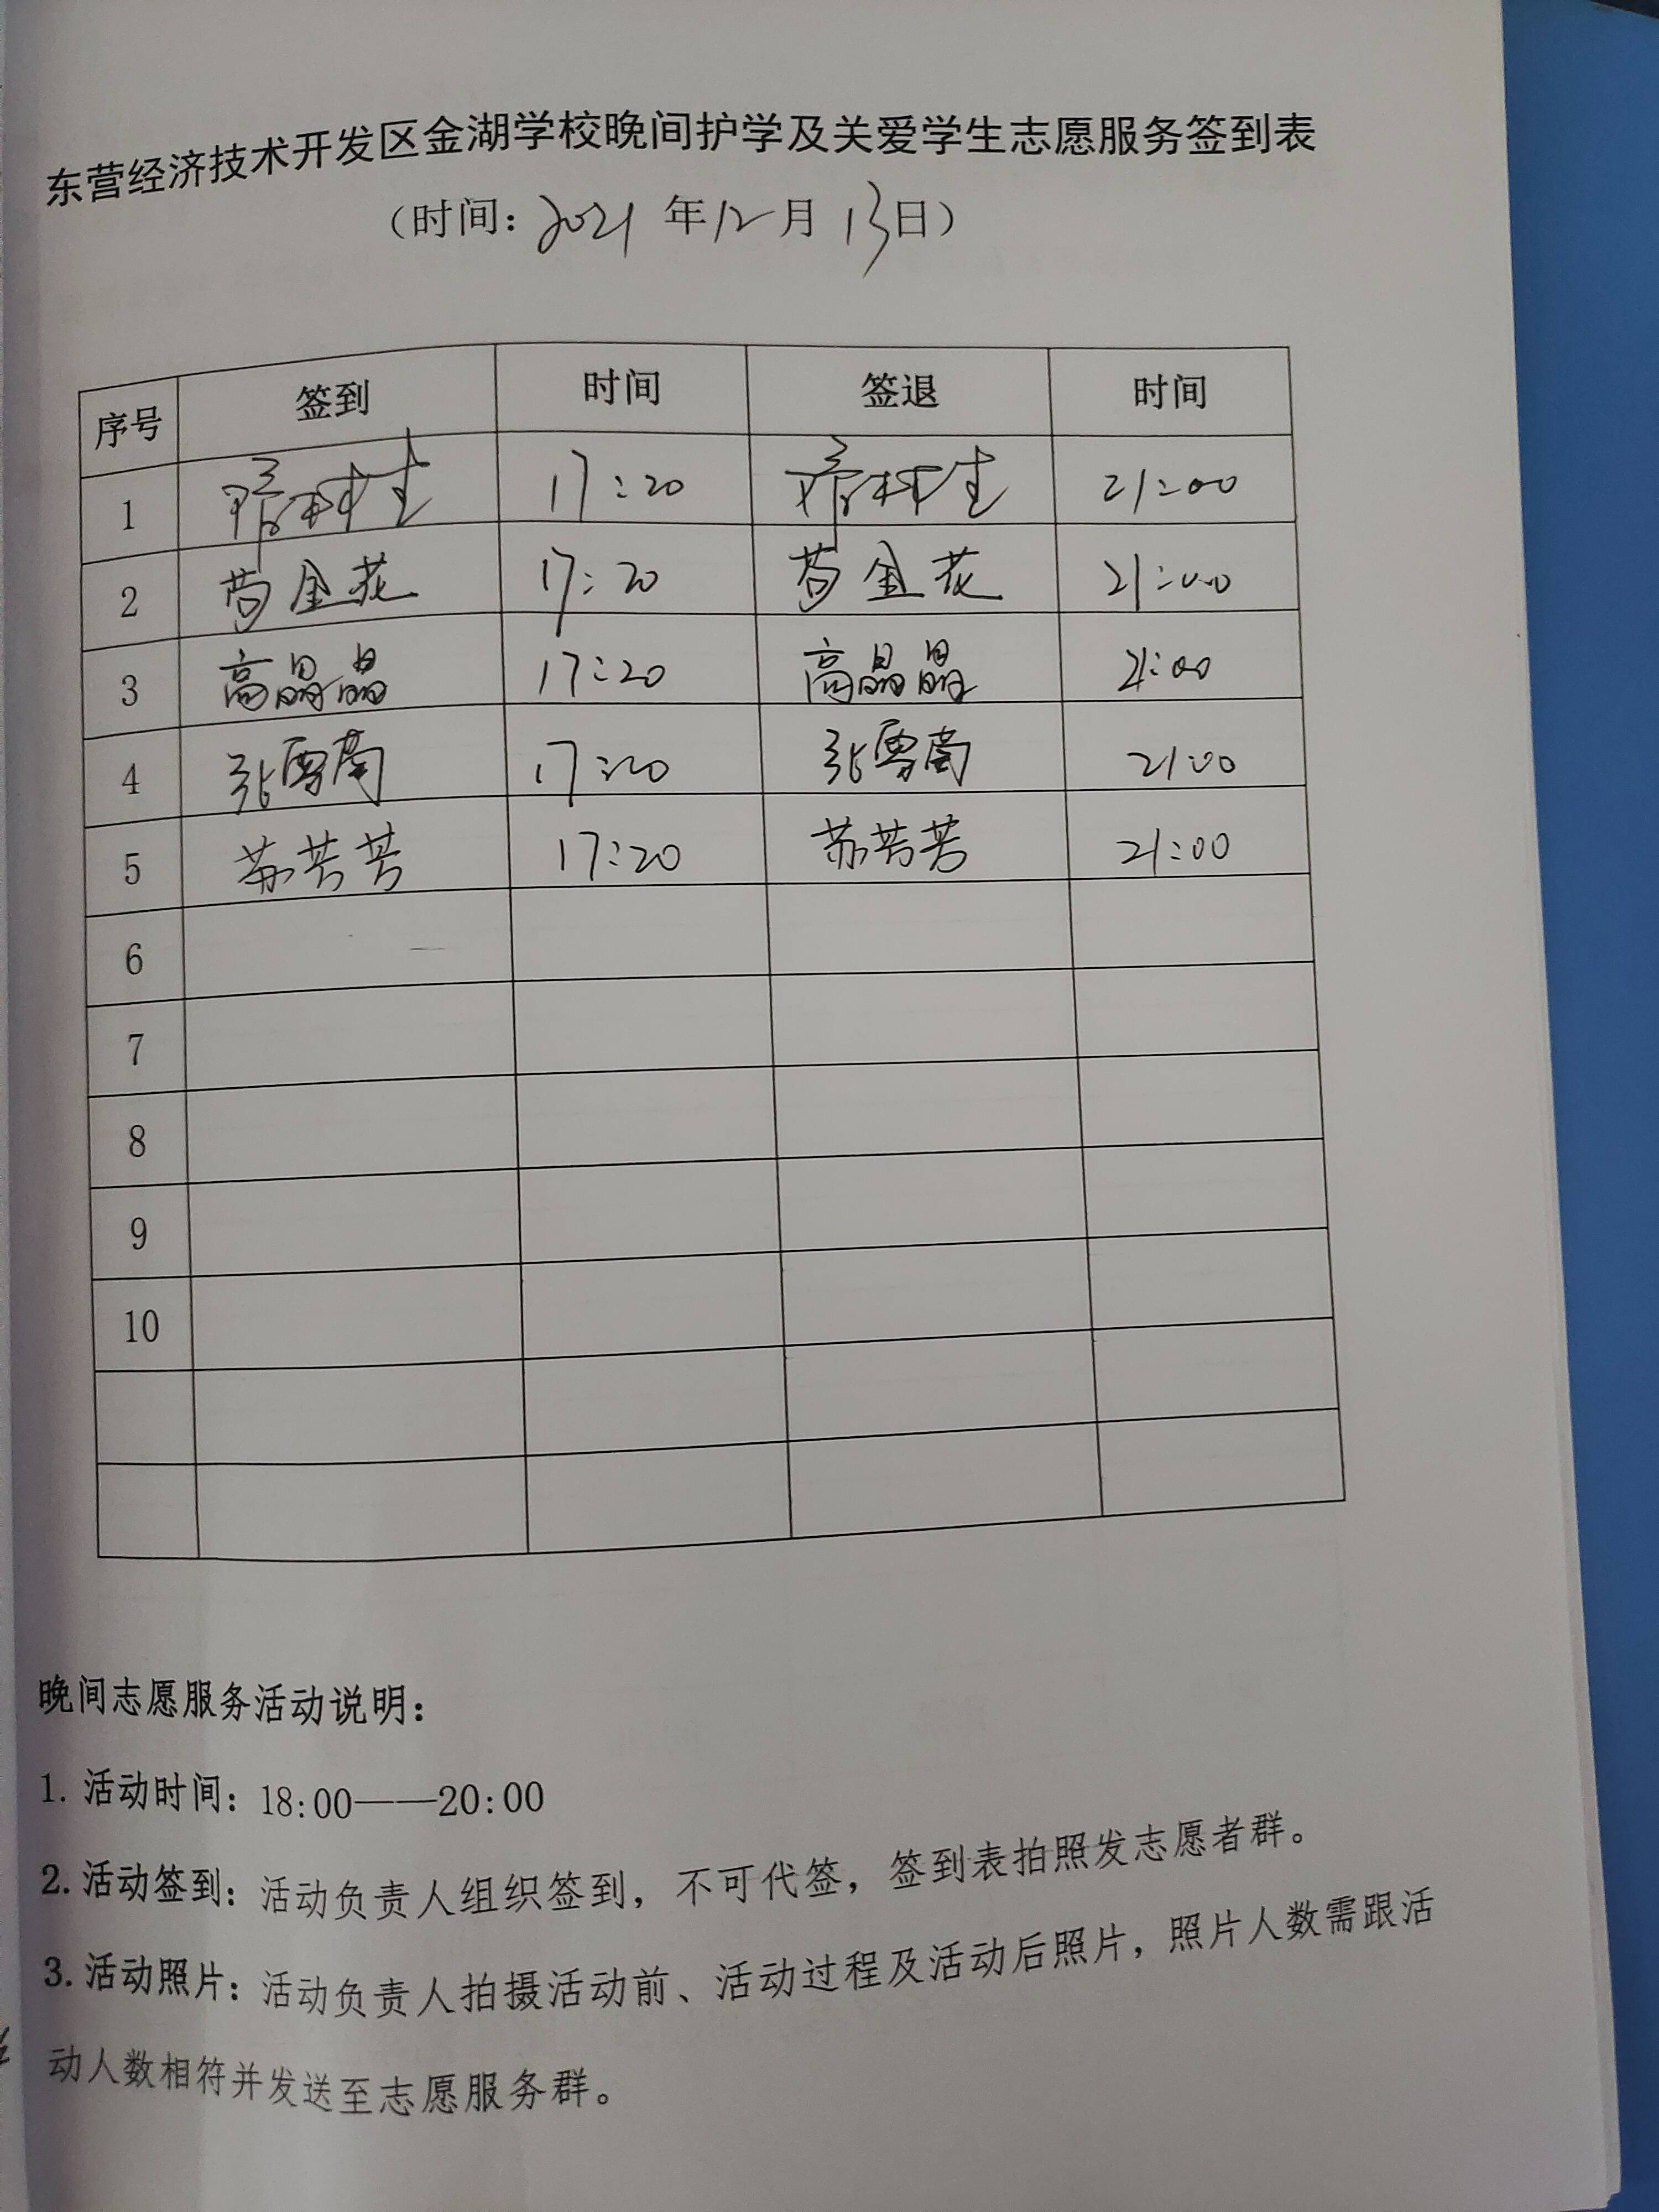 东营经济技术开发区金湖学校晚间护学及关爱学生志愿服务签到表
（时间：2021年12月13日）
序号 签到 时间 签退 时间
1 17:20 21:00
2 苟金花 17:20 苟金花 21:00
3 高晶晶 17:20 高晶晶 21:00
4 张雪南 17:20 张雪南 21:00
5 苏芳芳 17:20 苏芳芳 21:00
6
7
8
9
10
晚间志愿服务活动说明：
1. 活动时间：18:00——20:00
2. 活动签到：活动负责人组织签到，不可代签，签到表拍照发志愿者群。
3. 活动照片：活动负责人拍摄活动前、活动过程及活动后照片，照片人数需跟活
动人数相符并发送至志愿服务群。